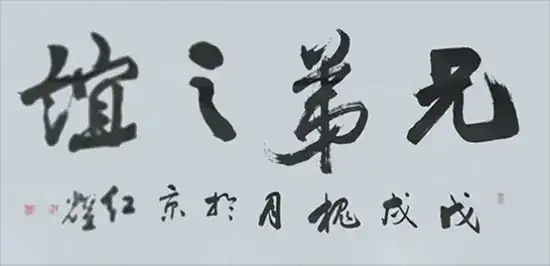 兄弟之谊
戊戌槐月於京红耀